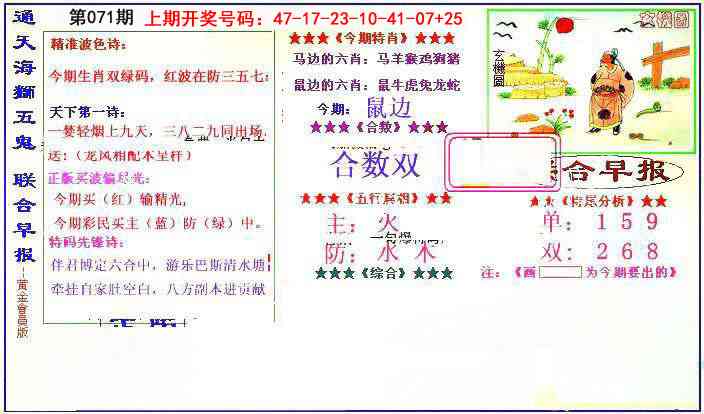 通天海獅五鬼 联合早报--黄金會員版
第071期 上期开奖号码：47-17-23-10-41-07+25
精准波色诗：
今期生肖双绿码，红波在防三五七；
天下第一诗：
一娄轻烟上九天，三八二九同出场.
送：（龙凤相配本呈样）
正版买波输尽光：
今期买（红）输精光，
今期彩民买主（蓝）防（绿）中。
特码先锋诗：
伴君博定六合中，游乐巴斯清水塘
牵挂自家肚空白，八方副本进贡献
★★★《今期特肖》★★★
马边的六肖：马羊猴鸡狗猪
鼠边的六肖：鼠牛虎兔龙蛇
今期：鼠边
★★★《合数》★★★
合数双
★★★《五行展相》★★★
主：火
防：水木
★★★《综合》★★★
玄機圖
玄機圖
联合早报
单：1 5 9
双：2 6 8
注：《画 为今期要出的》